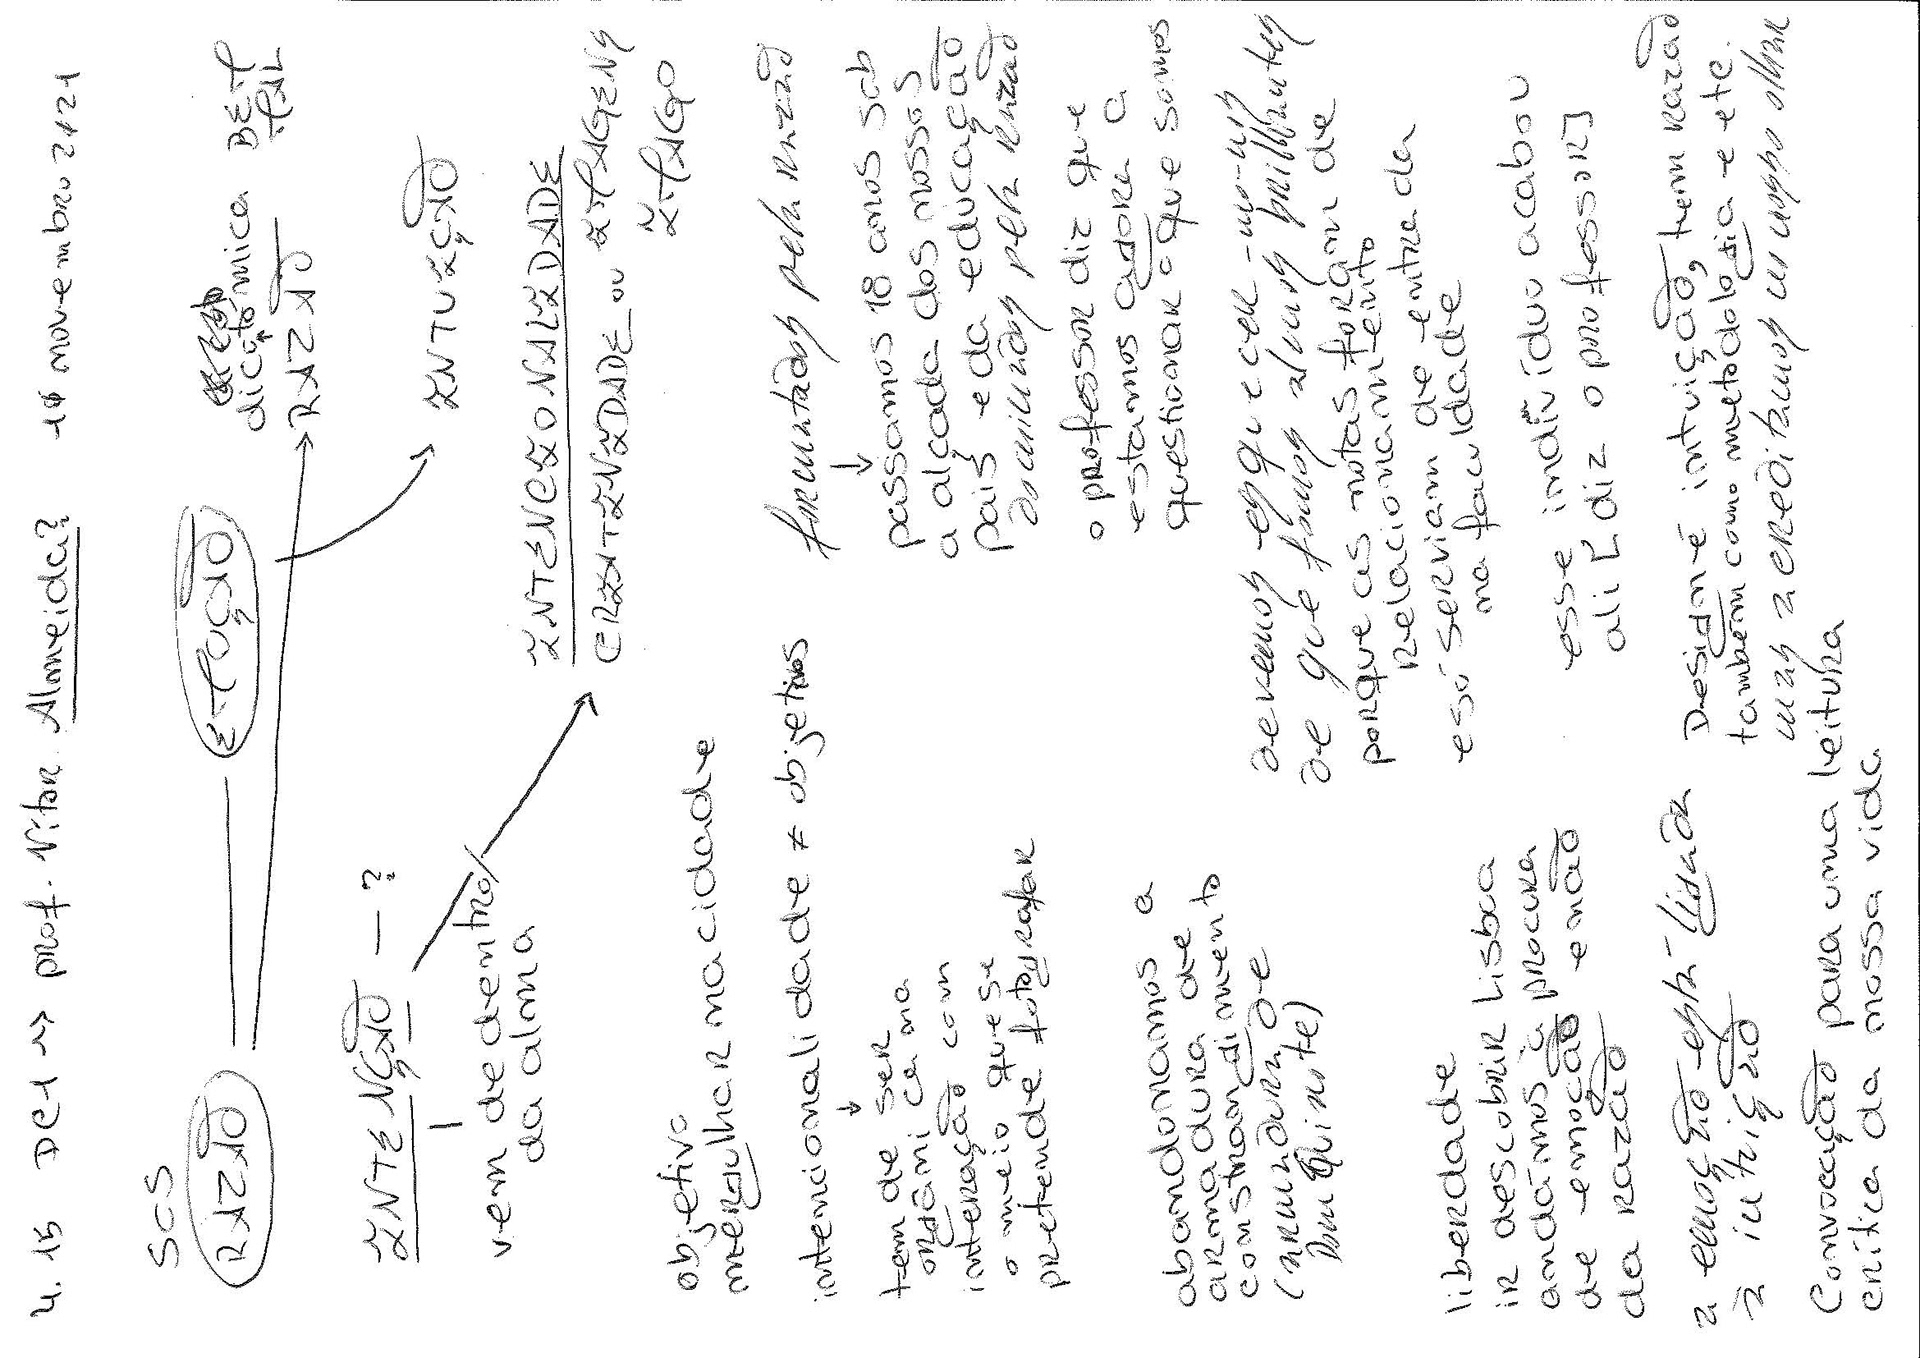 4. 15 DC1 → prof. Vítor Almeida? 10 novembro 2021
SOS
RAZÃO
EMOÇÃO
dicotómica
RAZÃO
INTUIÇÃO
INTENÇÃO — ?
vem de dentro/
da alma
INTENCIONALIDADE
CRIATIVIDADE ou IMAGENS
IMAGO
objetivo
mergulhar na cidade
intencionalidade ≠ objetivos
↓
tem de ser
orgânica na
interação com
o meio que se
pretende fotografar
formatados pela razão
↓
passamos 18 anos sob
a alçada dos nossos
pais e da educação
dominados pela razão
o professor diz que
estamos agora a
questionar o que somos
abandonamos a
armadura de
constrangimento
(armadura de
Dom Quixote)
devemos esquecer-mo-nos
de que fomos alunos brilhantes
porque as notas foram de
relacionamento
e só serviam de entrada
na faculdade
liberdade
ir descobrir Lisboa
andámos à procura
de emoção e não
da razão
esse indivíduo acabou
ali [diz o professor]
a emoção está ligada
à intuição
Design é intuição, tem razão
também como metodologia e etc.
mas acreditamos no nosso olhar
Convocação para uma leitura
crítica da nossa vida